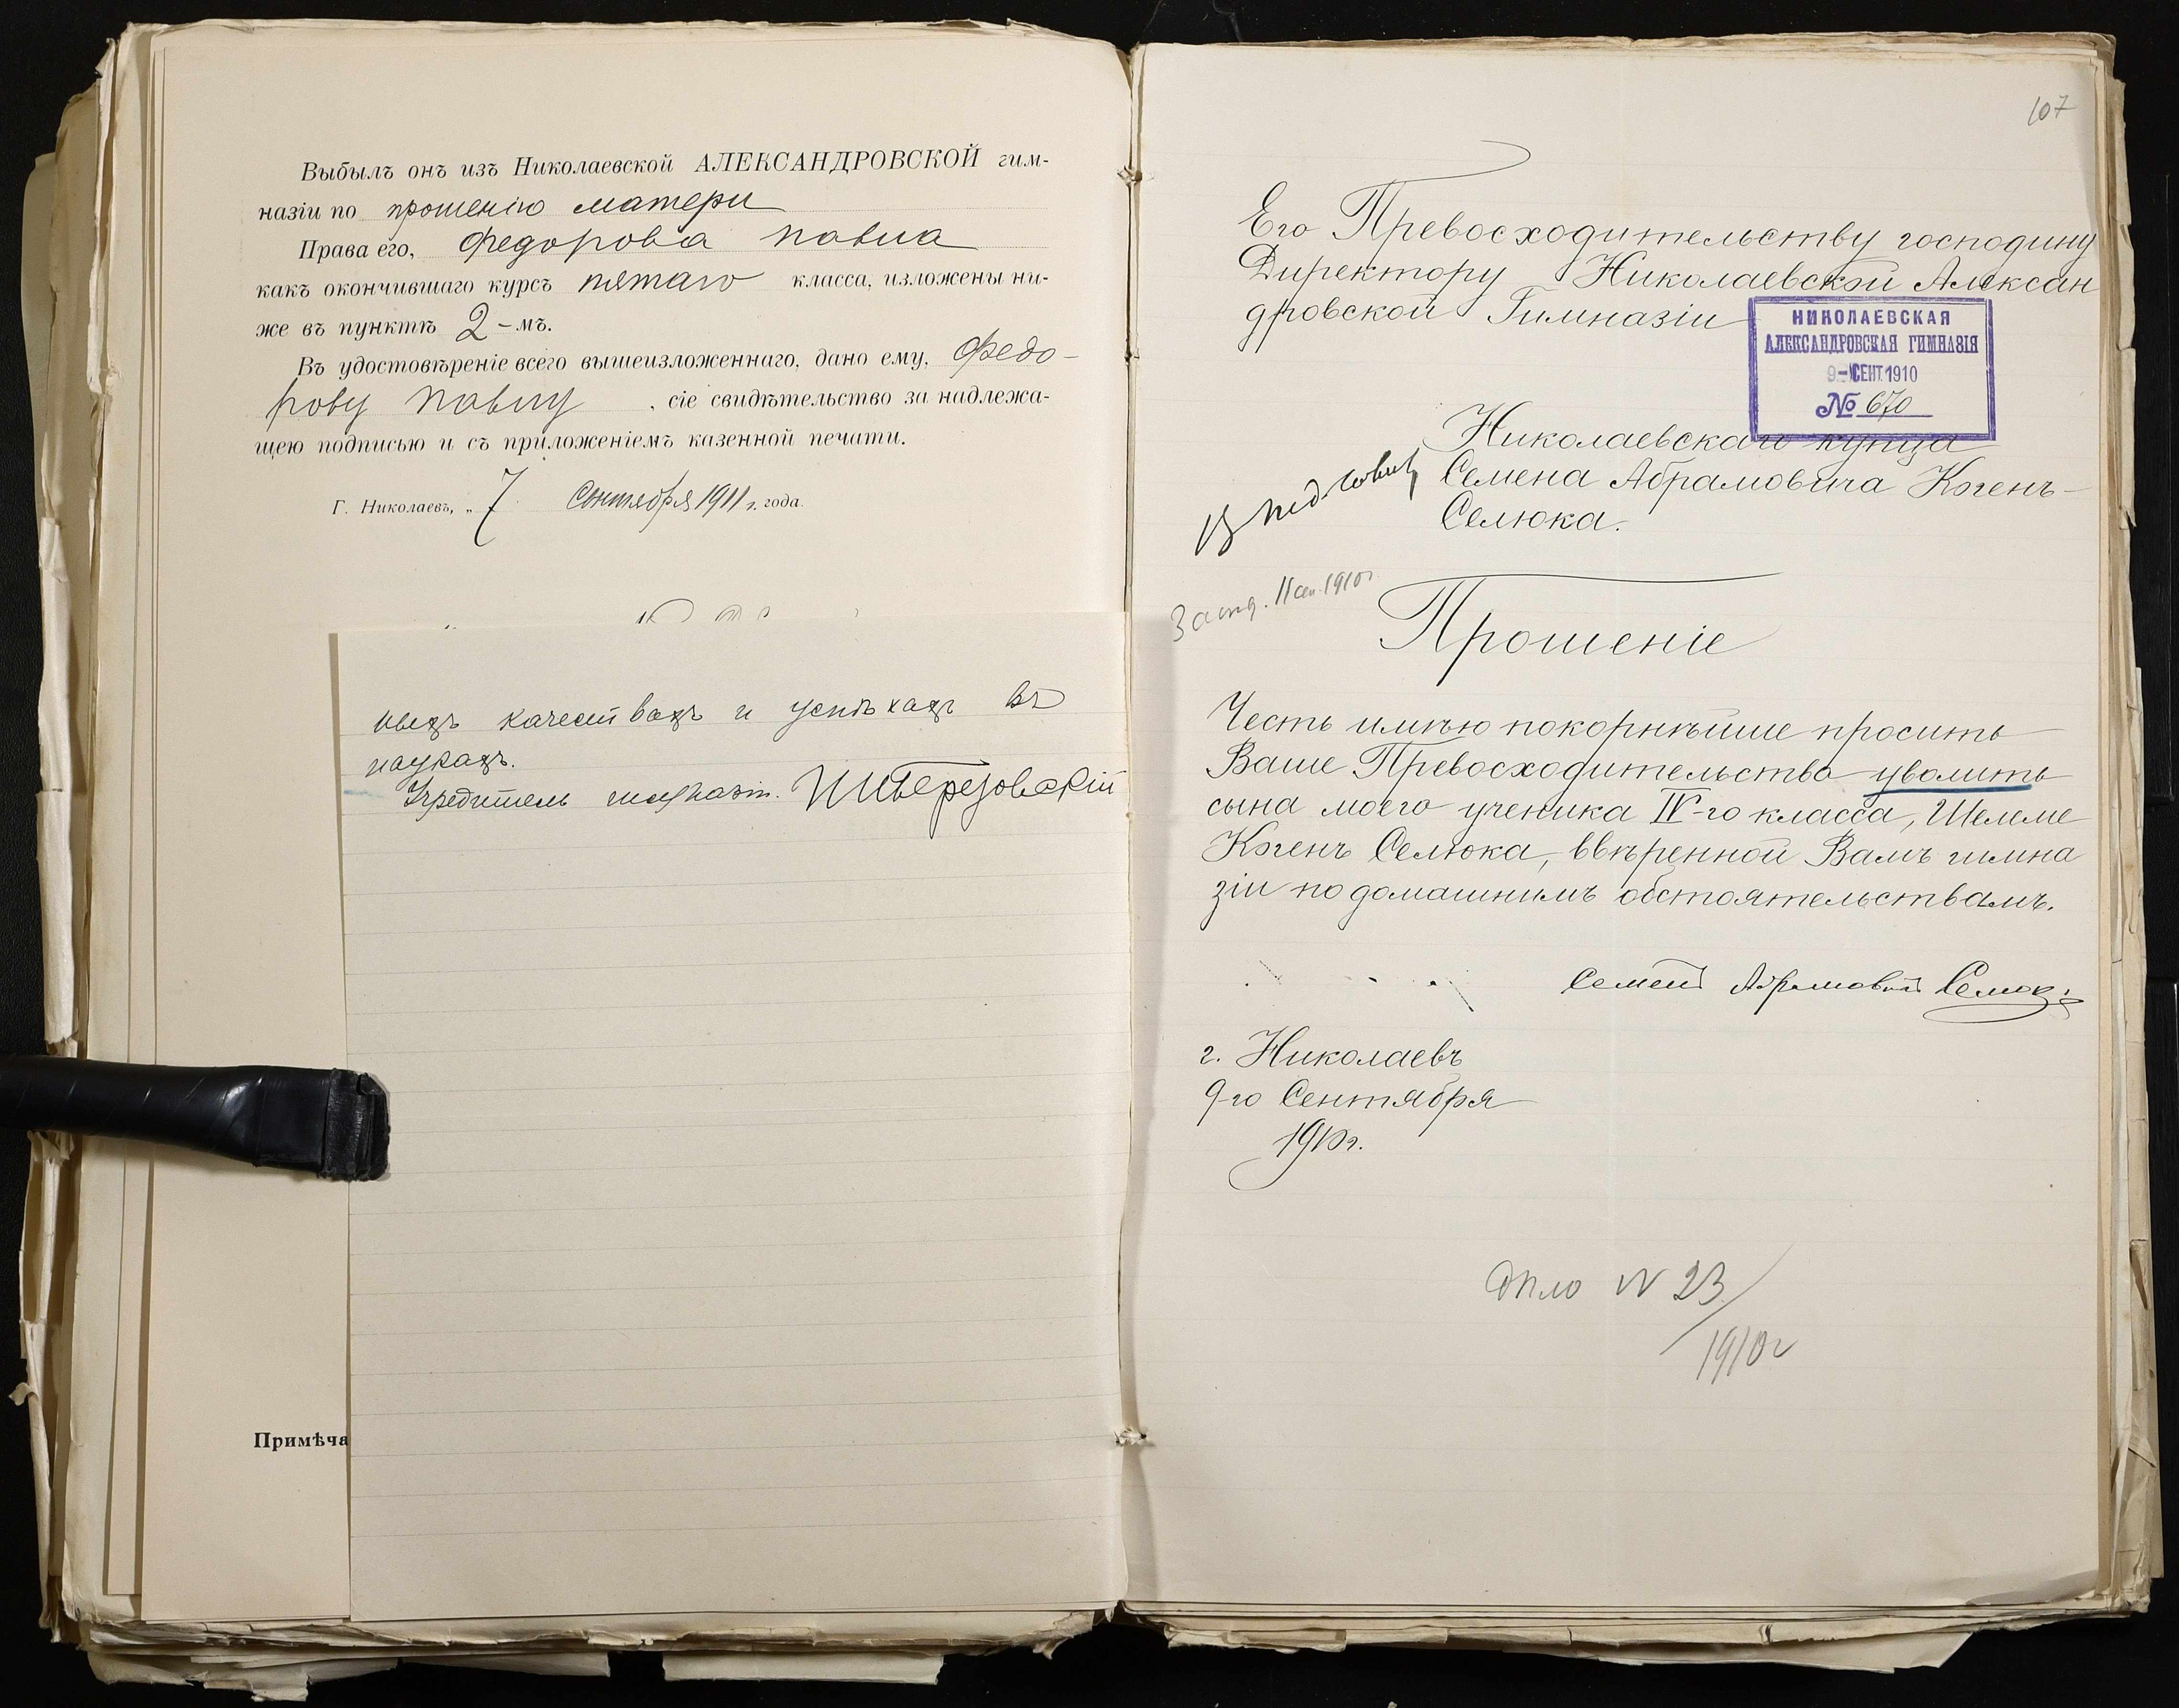 Выбылъ онъ изъ Николаевской АЛЕКСАНДРОВСКОЙ гим-
назіи по прошенію матери
Права его, Федорова Павла
какъ окончившаго курсъ пятаго класса, изложены ни-
же въ пунктѣ 2-мъ.
Въ удостовѣреніе всего вышеизложеннаго, дано ему, Федо-
рову Павлу, сіе свидѣтельство за надлежа-
щею подписью и съ приложеніемъ казенной печати.
Г. Николаевъ, „ 7 Сентября 1911 г. года.
качествахъ и успѣхахъ въ
наукахъ.
Учредитель гимназіи. Березовскій
Примѣча
107
Его Превосходительству господину
Директору Николаевской Алексан
дровской Гимназіи
НИКОЛАЕВСКАЯ
АЛЕКСАНДРОВСКАЯ ГИМНАЗІЯ
9-СЕНТ.1910
№ 670
Николаевскаго купца
Семена Абрамовича Когенъ-
Селюка.
В пед. совѣтъ
11 сен. 1910 г.
Прошеніе
Честь имѣю покорнѣйше просить
Ваше Превосходительство уволить
сына моего ученика IV-го класса, Шелеме
Когенъ Селюка, ввѣренной Вамъ гимна
зіи по домашнимъ обстоятельствамъ.
Семенъ Абрамовичъ Селюкъ
г. Николаевъ
9-го Сентября
1910 г.
Дѣло N 23/
1910 г